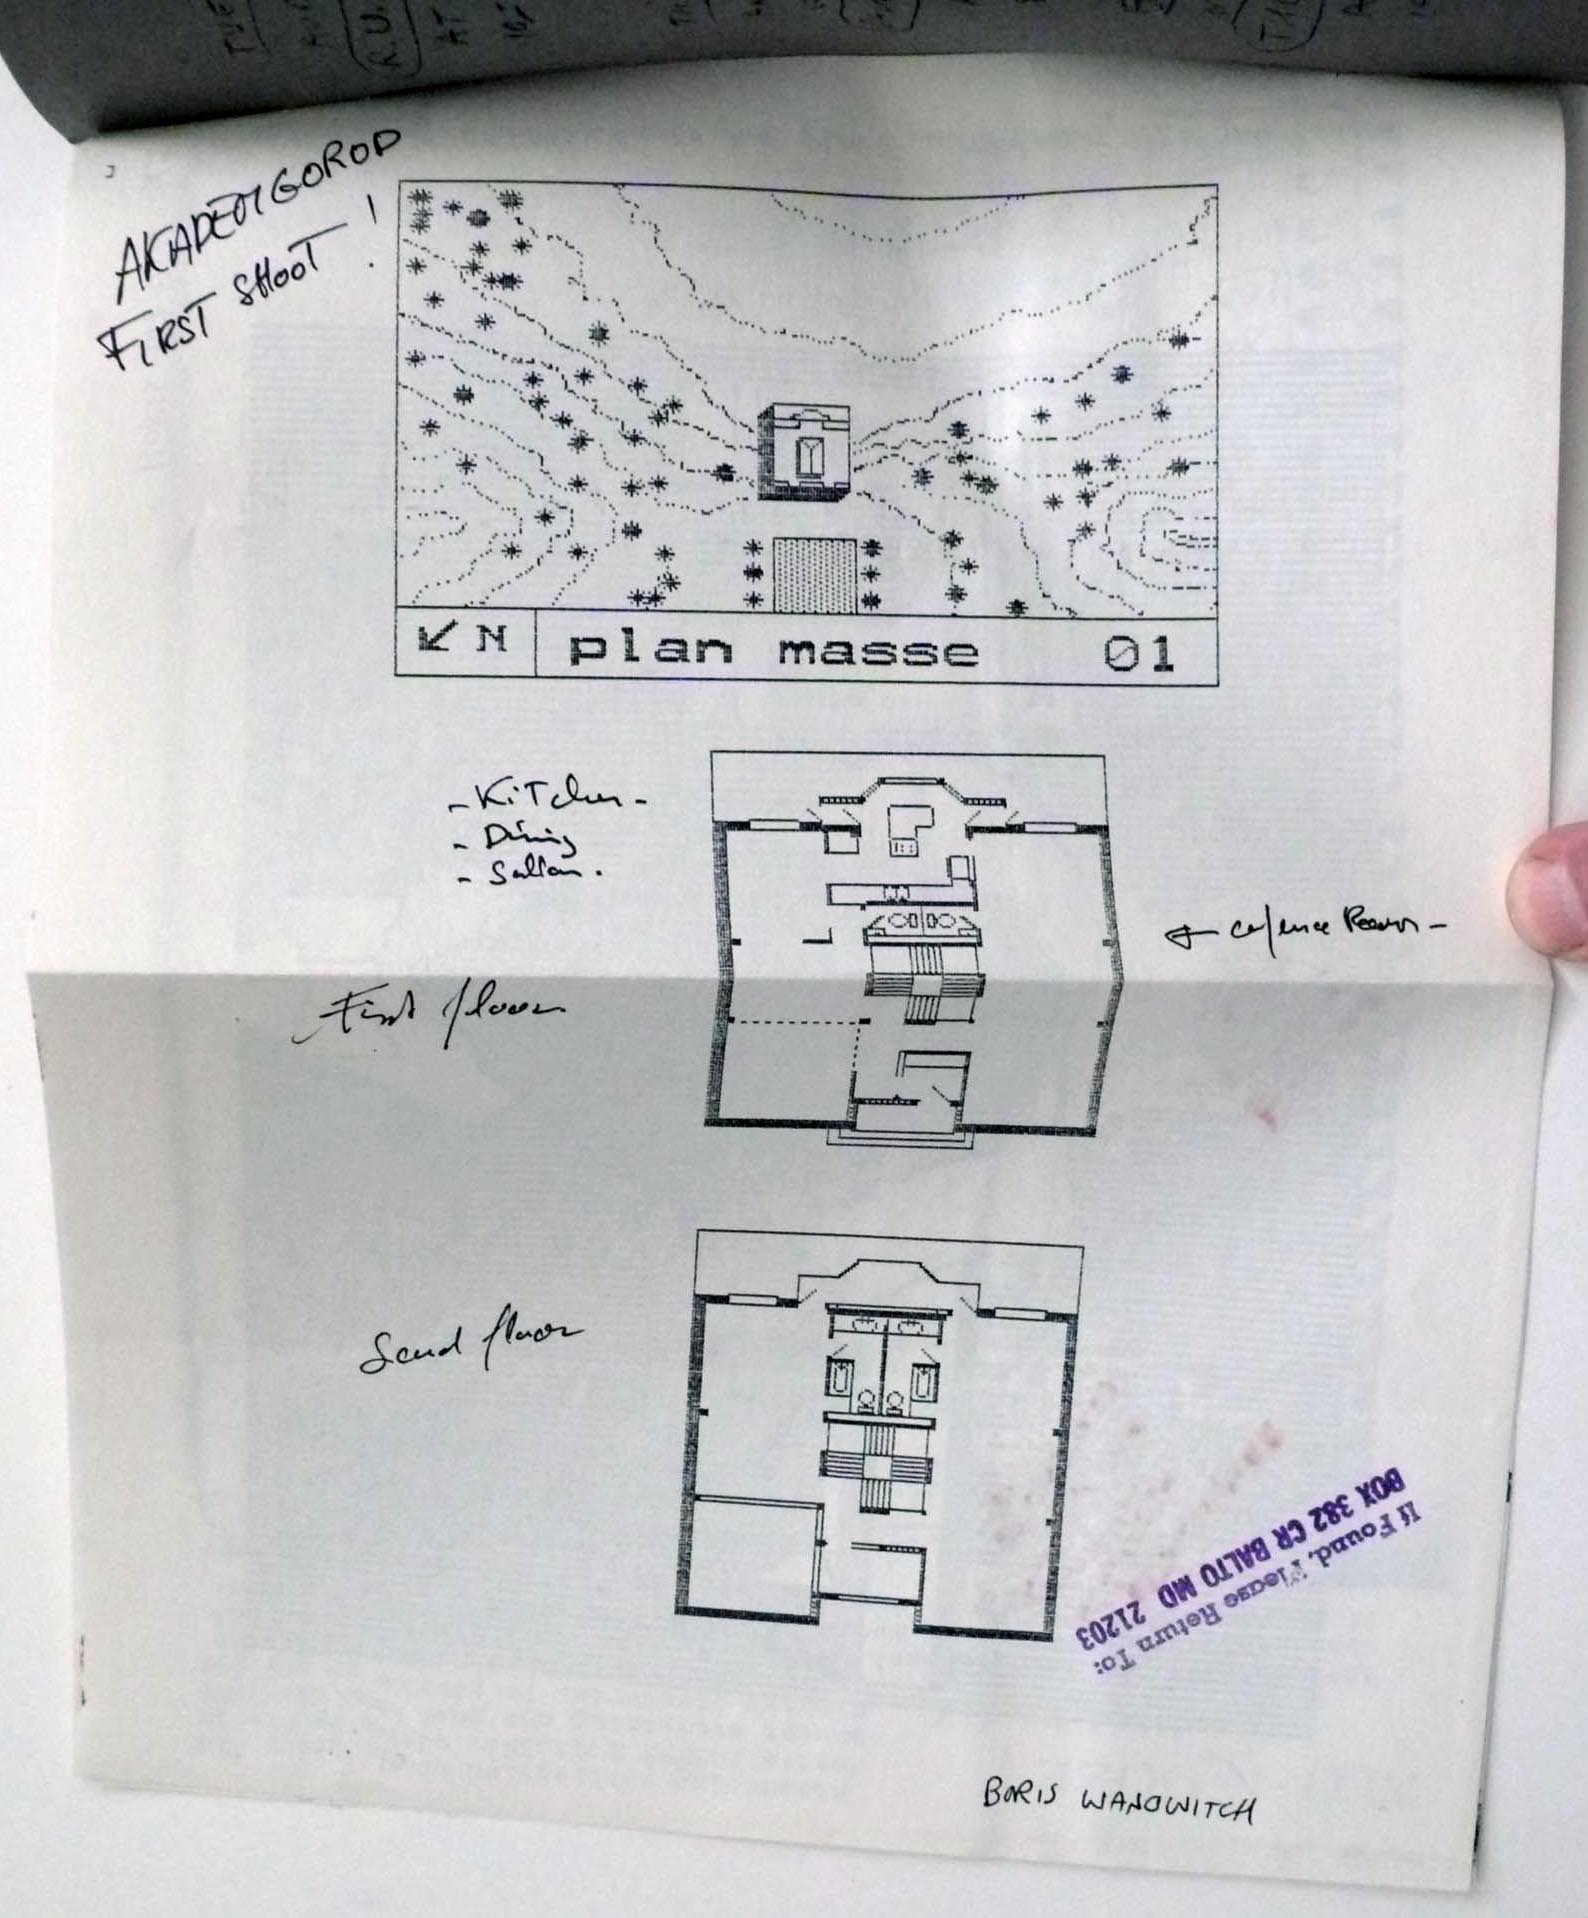 AKADEMGOROD
FIRST SHOOT !
N
plan masse 01
- Kitchen -
- Dining
- Sallon .
First floor
Second floor
If Found, Please Return To:
BOX 382 CR BALTO MD 21203
BORIS WANOWITCH